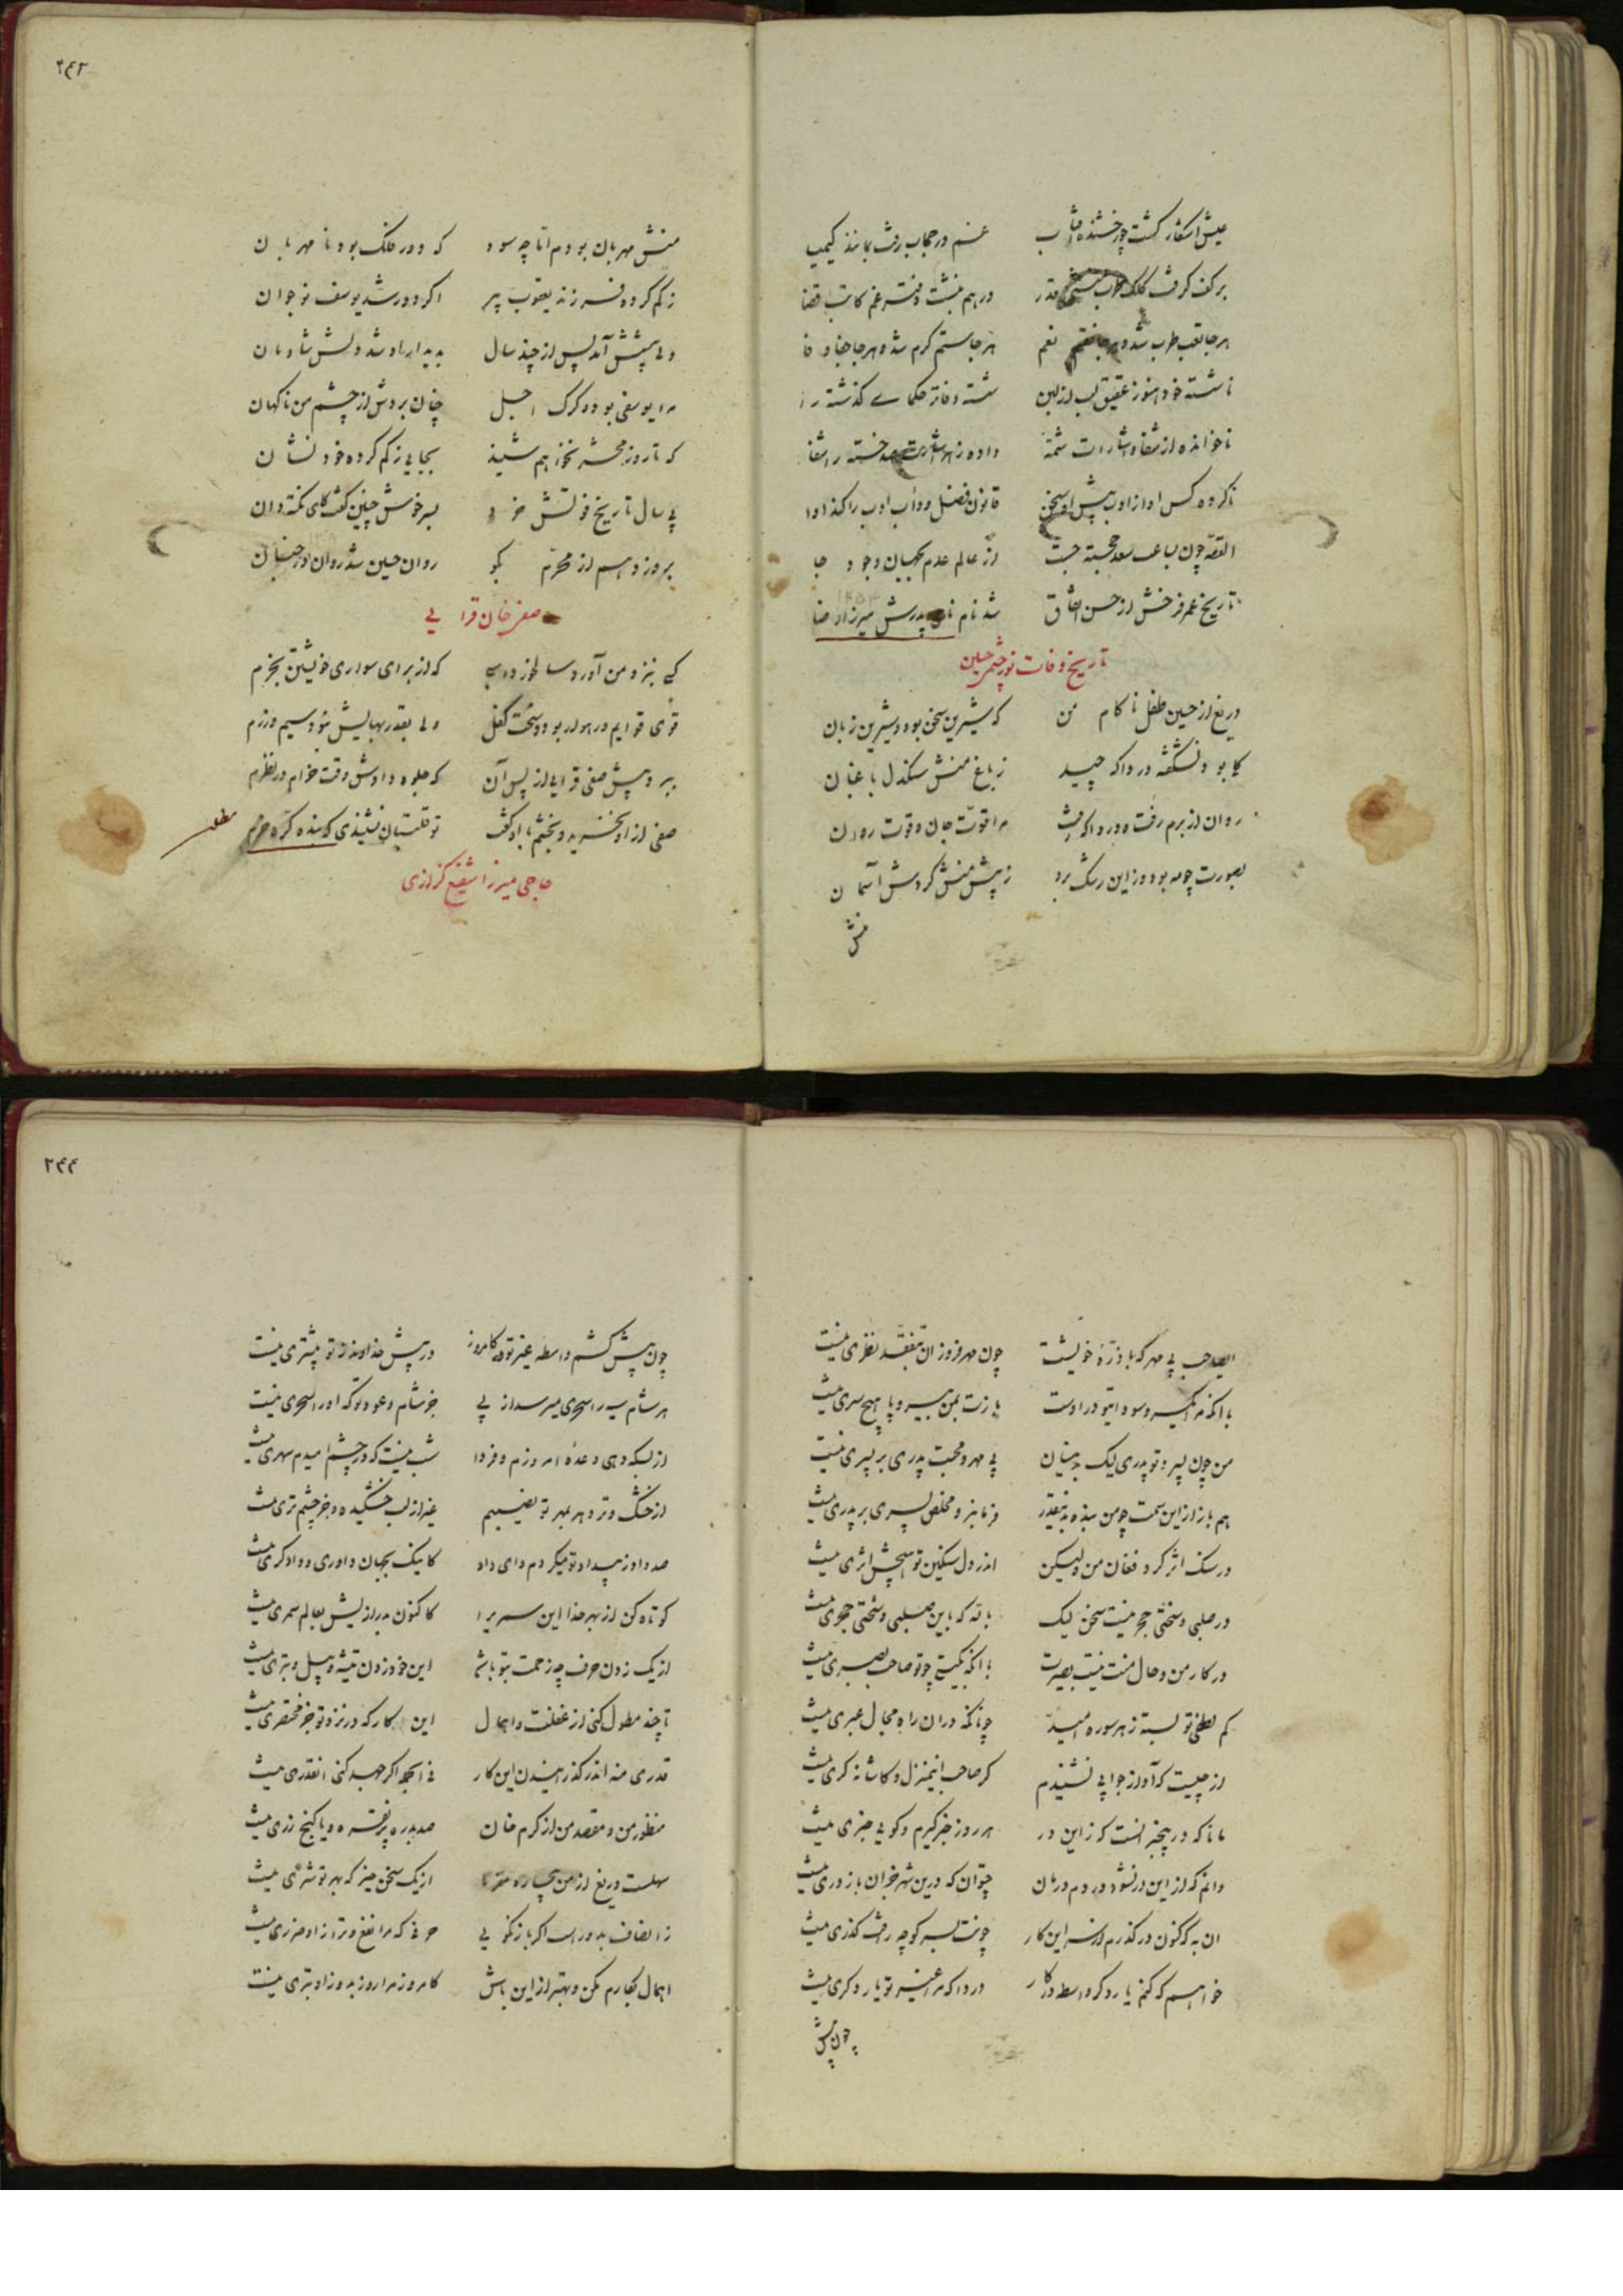 ۲۴۳
عیش آشکار گشت چو رخشنده آفتاب غم در حجاب رفت بمانند کیمیا
بر کف گرفت کلک قدر در هم نبشت دفتر غم کاتب قضا
هر جا تعب طرب شد و هر جا نقم نعم هر جا ستم کرم شد و هر جا جفا وفا
ناشسته خود هنوز عقیق لب از لبن شسته دفاتر حکمای گذشته را
ناخوانده از شفا و اشارات شمهٔ داده ز هر اشارت صد خسته را شفا
ناکرده کس ادا ز ادب پیش او سخن قانون فضل و داب ادب را کند ادا
القصه چون بساعت سعد خجسته جست از عالم عدم بجهان وجود جا
تاریخ عمر فرخش از حسن اتفاق شد نام پدرش میرزا رضا
تاریخ وفات نور چشم حسین
دریغ از حسین طفل ناکام من که شیرین سخن بود و شیرین زبان
گلی بود نشکفته دردا که چید ز باغ منش سنگدل باغبان
روان از برم رفت و دردا که رفت مرا قوت جان و قوت روان
بصورت چو مه بود و زین رشک برد ز پیش منش گردش آسمان
منش
منش مهربان بودم اما چه سود که دور فلک بود نامهربان
ز گم کرده فرزند یعقوب پیر اگر دور شد یوسف نوجوان
ولی پیشش آمد پس از چند سال بدیدار او شد دلش شادمان
مرا یوسفی بود و گرگ اجل چنان بردش از چشم من ناگهان
که تا روز محشر نخواهم شنید بجایی ز گم کرده خود نشان
پی سال تاریخ فوتش خرد بسر خوش چنین گفت کای نکته دان
بروز دهم از محرم بگو روان حسین شد روان در جنان
صفر خان قرایی
کسی بنزد من آورد که از برای سواری خویشتن بخرم
قوی قوایم و رهوار بود و سخت کفل ولی بقدر بهایش نبود سیم و زرم
ببرد پیش صفی قرایی از پس آن که جلوه دادش وقت خرام در نظرم
صفی از او نخرید و بخشم با او گفت تو قلتبان نشنیدی که بنده کره خرم
حاجی میرزا شفیع کزازی
۲۴۴
ایصاحب بی مهر که با ذرهٔ خویشت چون مهر فروزان بتفقد نظری نیست
با آنکه مرا یکسر و سودای تو در اوست یارت بمن بی سر و پا هیچ سری نیست
من چون پسر و تو پدری لیک بدینسان بی مهر و محبت پدری بر پسری نیست
هم باز از این سمت چو من بنده بدینقدر فرمانبر و مخلص پسری بر پدری نیست
در سنگ اثر کرد فغان من و لیکن اندر دل سنگین تو هیچش اثری نیست
در صلبی و سختی حجر نیست سخن لیک بالله که باین صلبی و سختی حجری نیست
در کار من و حال منت نیست بصیرت با آنکه بگیتی چو تو صاحب بصری نیست
کم لطفی تو بسته ز هر سو ره امید چونانکه در ان راه مجال عبری نیست
از چیست که آواز جوابی نشنیدم گر صاحب اینمنزل و کاشانه کری نیست
مانا که در بیخبر انست کز این در هر روز خبر گیرم و گویی خبری نیست
دانم که از این در نشود دردم درمان چتوان که درین شهر جز آن باز دری نیست
ان به که کنون در گذرم از سر این کار چونت بسر کوچه رأفت گذری نیست
خواهم که کنم یار دگر واسطه در کار دردا که مرا غیر تو یار دگری نیست
چون پیش
چون پیش کشم واسطه غیر تو کامروز در پیش خداوند ز تو پیشتری نیست
هر شام سیه را سحری میرسد از پی جز شام وعود تو که او را سحری نیست
از بسکه دهی وعدهٔ امروزم و فردا شب نیست که در چشم امیدم سهری نیست
از خشک و تر دهر بمهر تو نصیبم غیر از لب خشکیده و جز چشم تری نیست
صد داد ز بیداد تو میکردم و ای داد کاینک بجهان داوری و دادگری نیست
کوتاه کن از بهر خدا این سمر ایرا کاکنون بدرازیش بعالم سمری نیست
از یک زدن حرف چه زحمت بتو باشد این خود زدن تیشه و بیل و تبری نیست
تا چند مطول کنی از غفلت و اهمال این کار که در نزد تو جز مختصری نیست
قدری منه اندر گذرانیدن این کار فی الجمله اگر جهد کنی انقدری نیست
منظور من و مقصد من از کرم خان صد بدره پر نقره و یا گنج زری نیست
سهلست دریغ از من بیچاره مفرما از یک سخن خیر که بهر تو شری نیست
ز انصاف بدور است اگر باز نگویی حرفی که مرا نفع و ترا زاو ضرری نیست
اهمال بکارم مکن و بهتر از این باش کامروز مرا روز بد و زاو بتری نیست